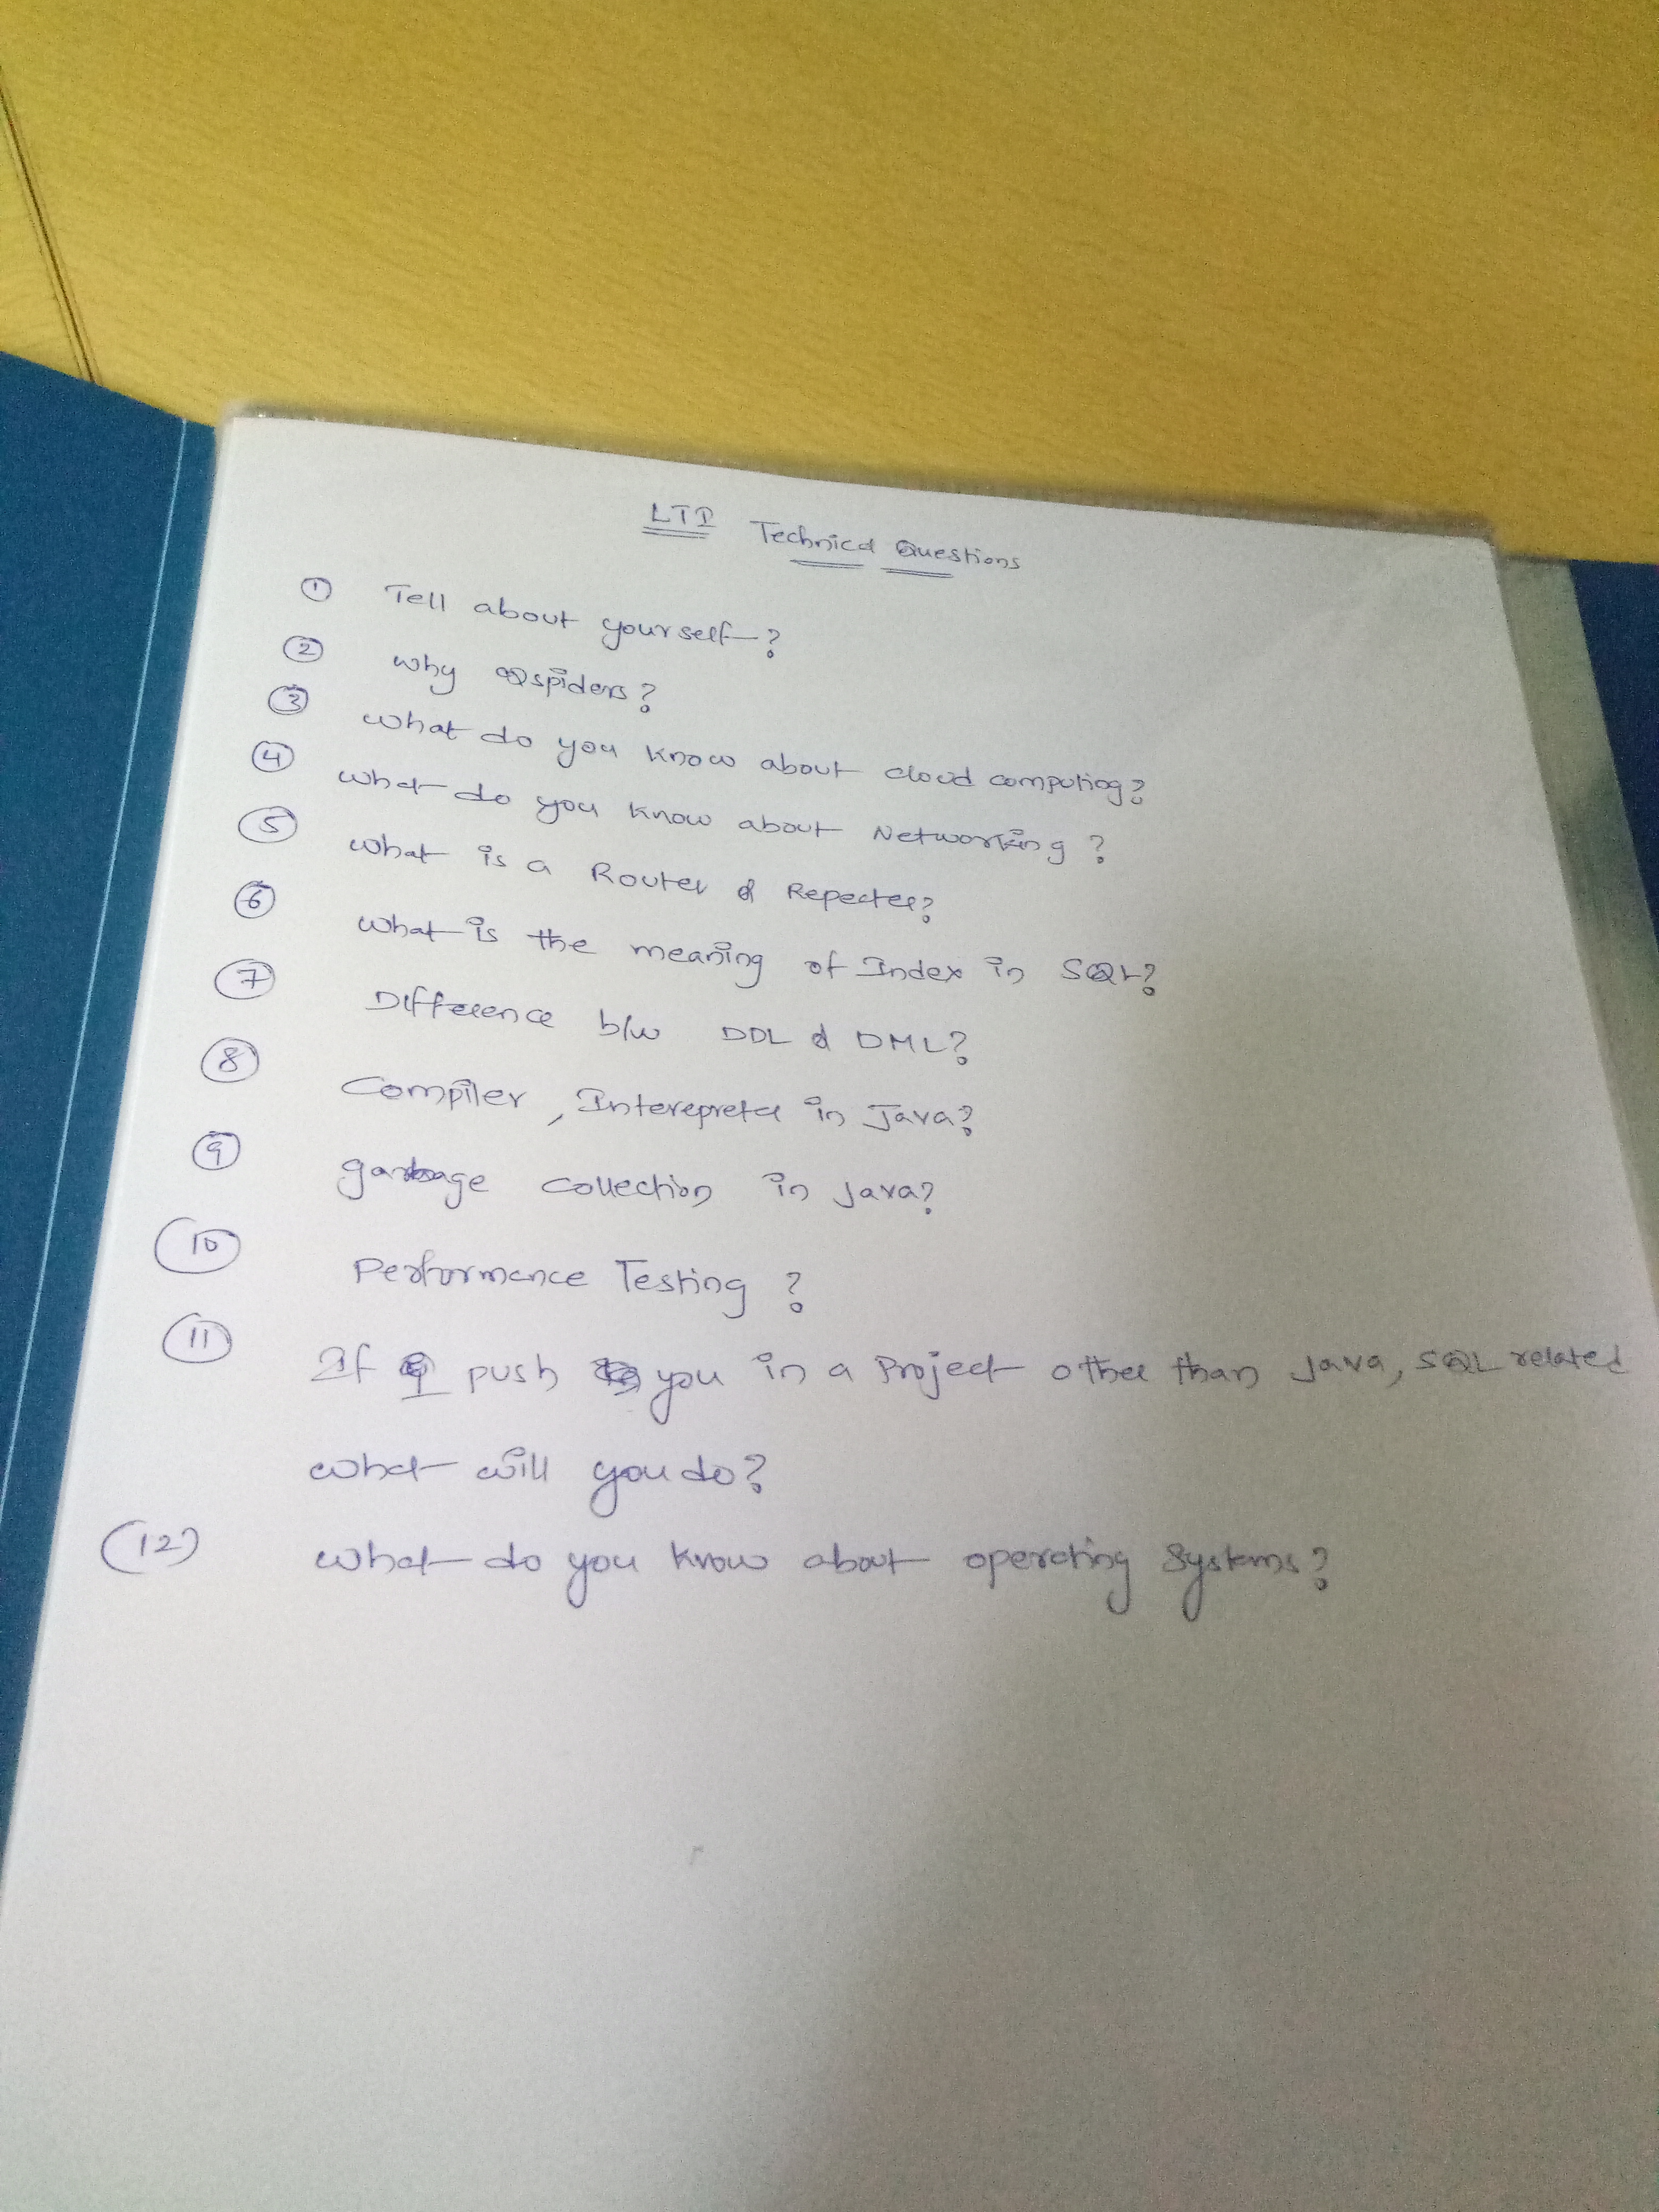 LTI Technical Questions
① Tell about yourself?
② Why Qspiders?
③ What do you know about cloud computing?
④ What do you know about Networking?
⑤ What is a Router & Repeater?
⑥ What is the meaning of Index in SQL?
⑦ Difference b/w DDL & DML?
⑧ Compiler, Interepreter in Java?
⑨ garbage collection in Java?
⑩ Performance Testing?
⑪ If I push you in a Project other than Java, SQL related
what will you do?
⑫ What do you know about operating systems?